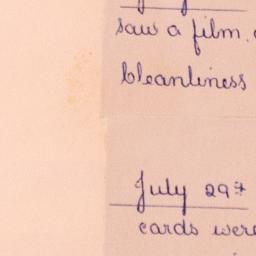 saw a film.
bleanliness
July 29th
cards were